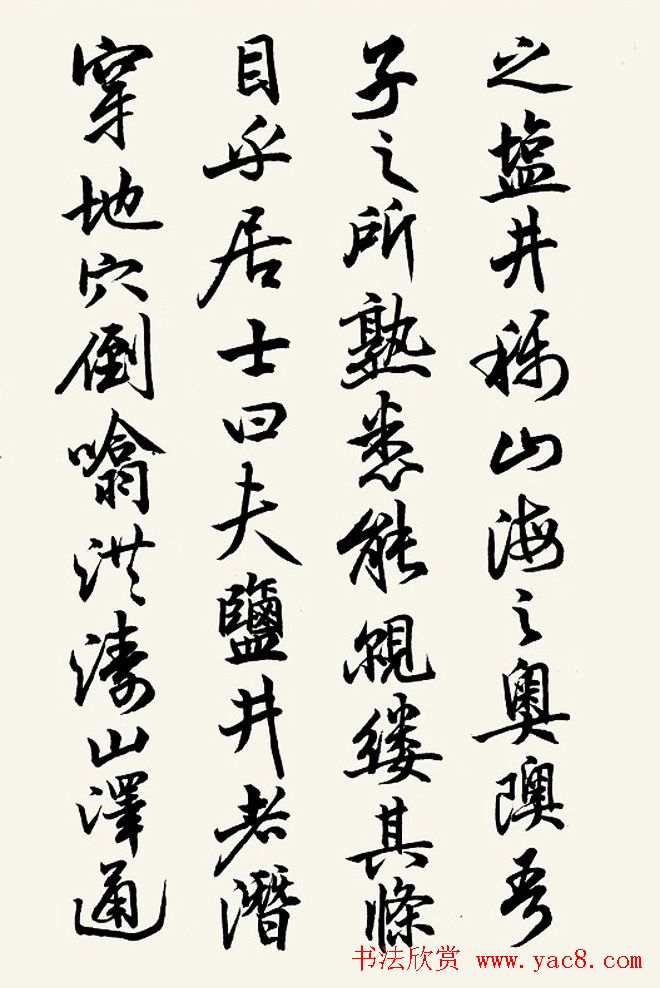 之塩井称山海之奥隩吾
子之所熟悉能覼缕其條
目乎居士曰夫鹽井者潛
穿地穴倒噏洪濤山澤通
书法欣赏 www.yac8.com